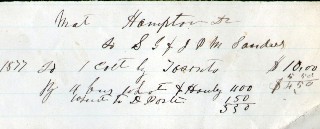 Mat Hampton Dr
to S I & J P M Sanders
1877 To 1 Colt by $10.00
By 4 bus & Hauly 400 5 50
to D 150 $4 50
550